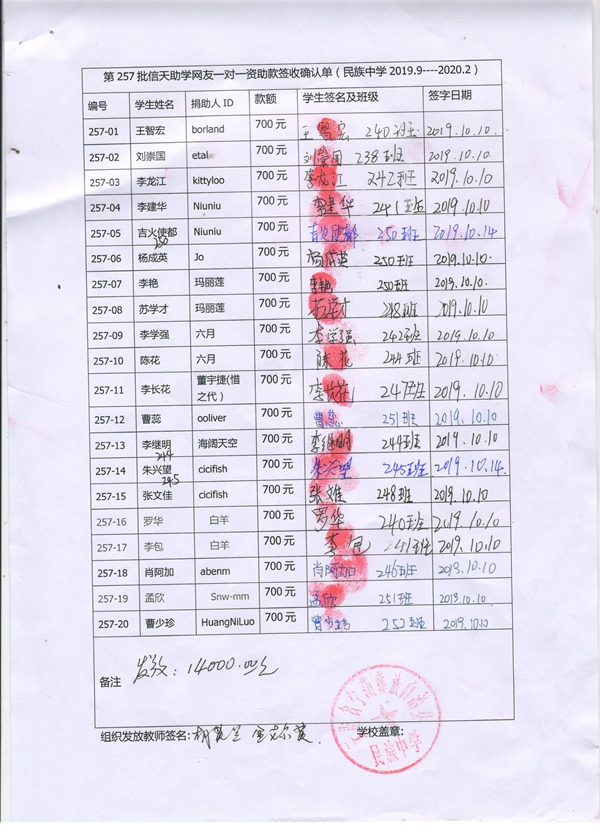 第 257 批信天助学网友一对一资助款签收确认单（民族中学 2019.9----2020.2）
编号 学生姓名 捐助人 ID 款额 学生签名及班级 签字日期
257-01 王智宏 borland 700 元 王智宏 240班 2019.10.10
257-02 刘崇国 etal 700 元 刘崇国 238班 2019.10.10
257-03 李龙江 kittyloo 700 元 李龙江 242班 2019.10.10
257-04 李建华 Niuniu 700 元 李建华 241班 2019.10.10
257-05 吉火使都 Niuniu 700 元 吉火使都 250班 2019.10.14
250
257-06 杨成英 Jo 700 元 杨成英 250班 2019.10.10
257-07 李艳 玛丽莲 700 元 李艳 250班 2019.10.10
257-08 苏学才 玛丽莲 700 元 苏学才 248班 2019.10.10
257-09 李学强 六月 700 元 李学强 242班 2019.10.10
257-10 陈花 六月 700 元 陈花 244班 2019.10.10
257-11 李长花 董宇捷(惜之代） 700 元 李长花 247班 2019.10.10
257-12 曹蕊 ooliver 700 元 曹蕊 251班 2019.10.10
257-13 李继明 海阔天空 700 元 李继明 244班 2019.10.10
244
257-14 朱兴望 cicifish 700 元 朱兴望 245班 2019.10.14.
245
257-15 张文佳 cicifish 700 元 张文佳 248班 2019.10.10
257-16 罗华 白羊 700 元 罗华 240班 2019.10.10
257-17 李包 白羊 700 元 李包 241班 2019.10.10
257-18 肖阿加 abenm 700 元 肖阿加 246班 2019.10.10
257-19 孟欣 Snw-mm 700 元 孟欣 251班 2019.10.10
257-20 曹少珍 HuangNiLuo 700 元 曹少珍 252班 2019.10.10
备注 发放：14000.00元
组织发放教师签名: 学校盖章:
民族中学